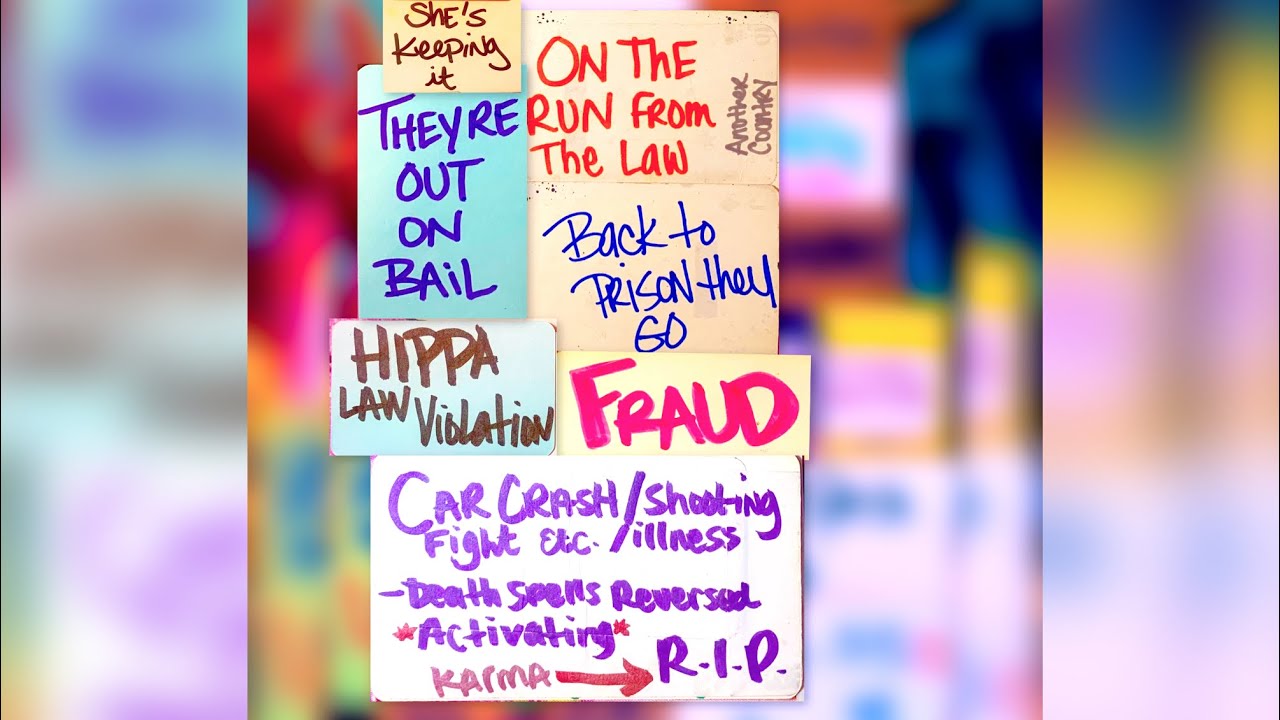 She's
Keeping
it
ON THE
RUN From
The Law
Another
Country
THEY'RE
OUT
ON
BAiL
Back to
PRISON they
GO
HIPPA
LAW Violation
FRAUD
CAR CRASH/Shooting
Fight Etc. /illness
-Death Spells Reversed
*Activating*
KARMA → R.I.P.